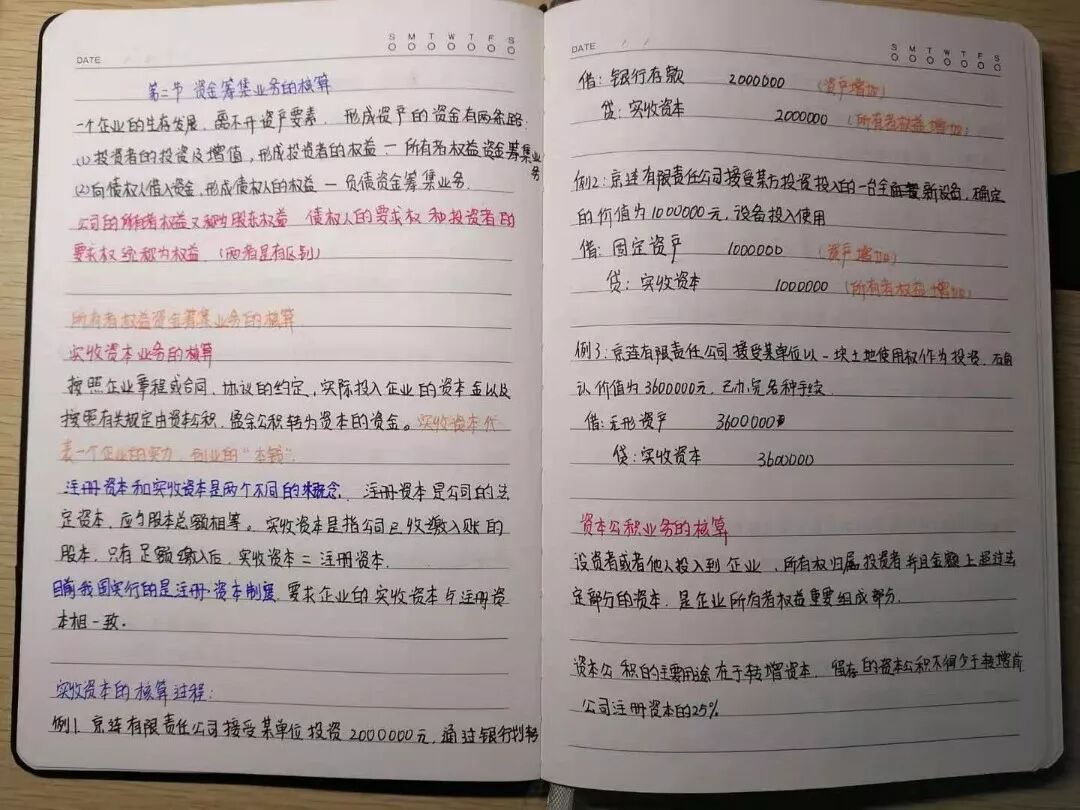 DATE
S M T W T F S
第二节 资金筹集业务的核算
一个企业的生存发展，离不开资产要素，形成资产的资金有两条路：
(1)投资者的投资及增值，形成投资者的权益 — 所有者权益资金筹集业务
(2)向债权人借入资金，形成债权人的权益 — 负债资金筹集业务.
公司的所有者权益又称为股东权益 债权人的要求权和投资者的
要求权统称为权益（两者是有区别）
所有者权益资金筹集业务的核算
实收资本业务的核算
按照企业章程或合同、协议的约定，实际投入企业的资本金以及
按照有关规定由资本公积、盈余公积转为资本的资金。实收资本代
表一个企业的实力，创业的“本钱”.
注册资本和实收资本是两个不同的概念. 注册资本是公司的法
定资本，应与股本总额相等。实收资本是指公司已收缴入账的
股本，只有足额缴入后，实收资本 = 注册资本.
目前我国实行的是注册资本制度，要求企业的实收资本与注册资
本相一致.
实收资本的核算过程:
例1. 京连有限责任公司接受某单位投资2000000元，通过银行划转
DATE
S M T W T F S
借：银行存款 2000000 （资产增加）
贷：实收资本 2000000 （所有者权益增加）
例2：京连有限责任公司接受某方投资投入的一台全新设备，确定
的价值为1000000元，设备投入使用
借：固定资产 1000000 （资产增加）
贷：实收资本 1000000 （所有者权益增加）
例3：京连有限责任公司接受某单位以一块土地使用权作为投资，在确
认价值为3600000元，已办完各种手续.
借：无形资产 3600000
贷：实收资本 3600000
资本公积业务的核算
投资者或者他人投入到企业，所有权归属投资者并且金额上超过法
定部分的资本，是企业所有者权益重要组成部分.
资本公积的主要用途在于转增资本，留存的资本公积不得少于转增前
公司注册资本的25%